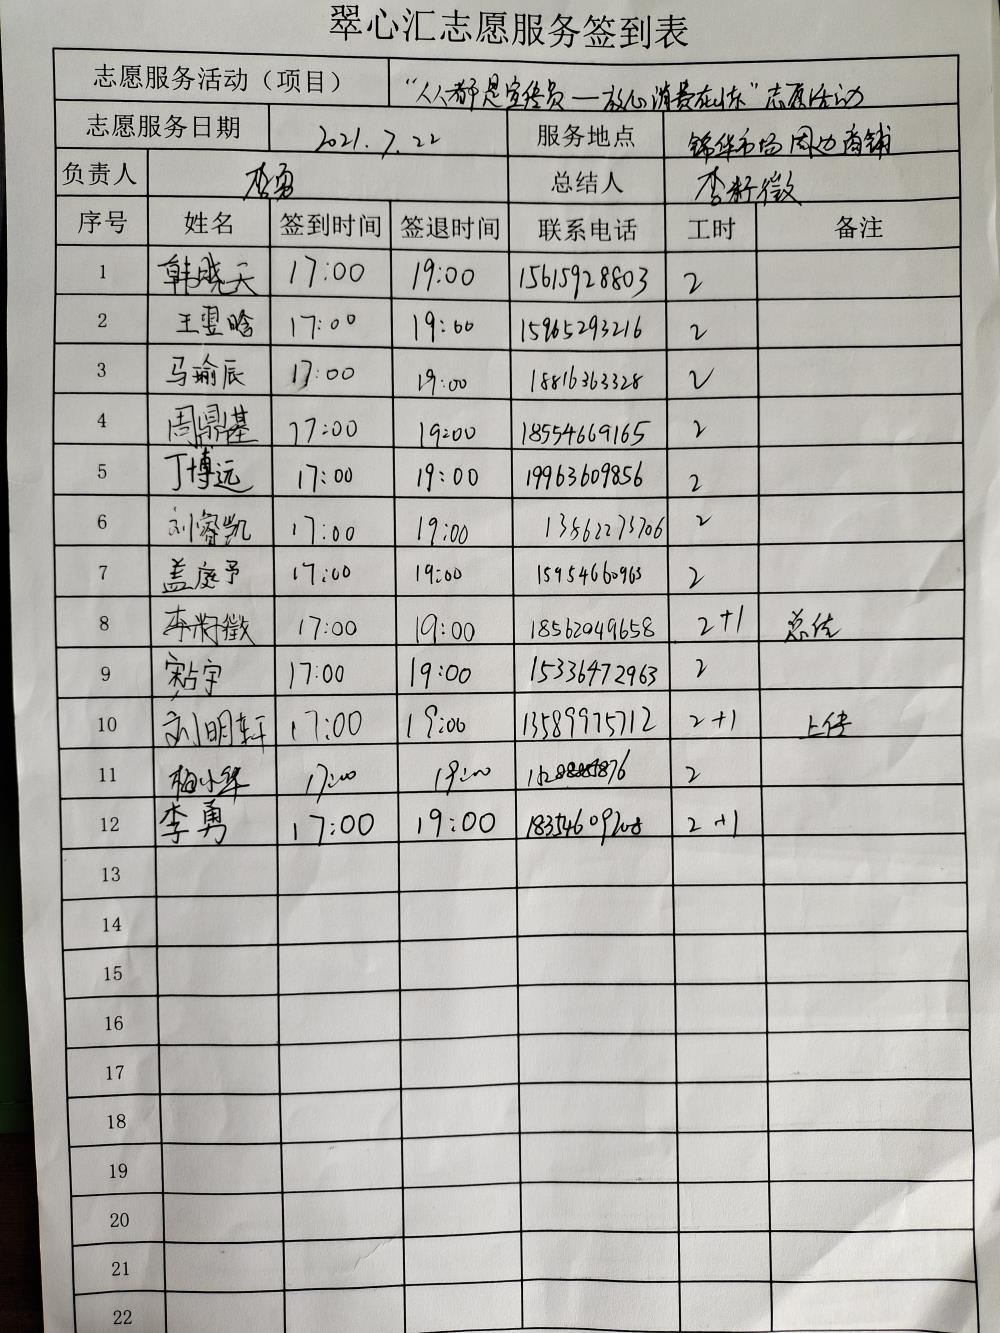 翠心汇志愿服务签到表
志愿服务活动（项目） “人人都是宣传员——放心消费在山东”志愿活动
志愿服务日期 2021.7.22 服务地点 锦华市场周边商铺
负责人 李勇 总结人 李籽徵
序号 姓名 签到时间 签退时间 联系电话 工时 备注
1 韩晓天 17:00 19:00 15615928803 2
2 王翌晗 17:00 19:00 15965293216 2
3 马瑜辰 17:00 19:00 18816363328 2
4 周鼎基 17:00 19:00 18554669165 2
5 丁博远 17:00 19:00 19963609856 2
6 刘睿凯 17:00 19:00 13562273706 2
7 盖庭予 17:00 19:00 15954660963 2
8 李籽徵 17:00 19:00 18562049658 2+1 总结
9 宋占宇 17:00 19:00 15336472963 2
10 刘明轩 17:00 19:00 13589975712 2+1 上传
11 17:00 19:00 2
12 李勇 17:00 19:00 18354609208 2+1
13
14
15
16
17
18
19
20
21
22